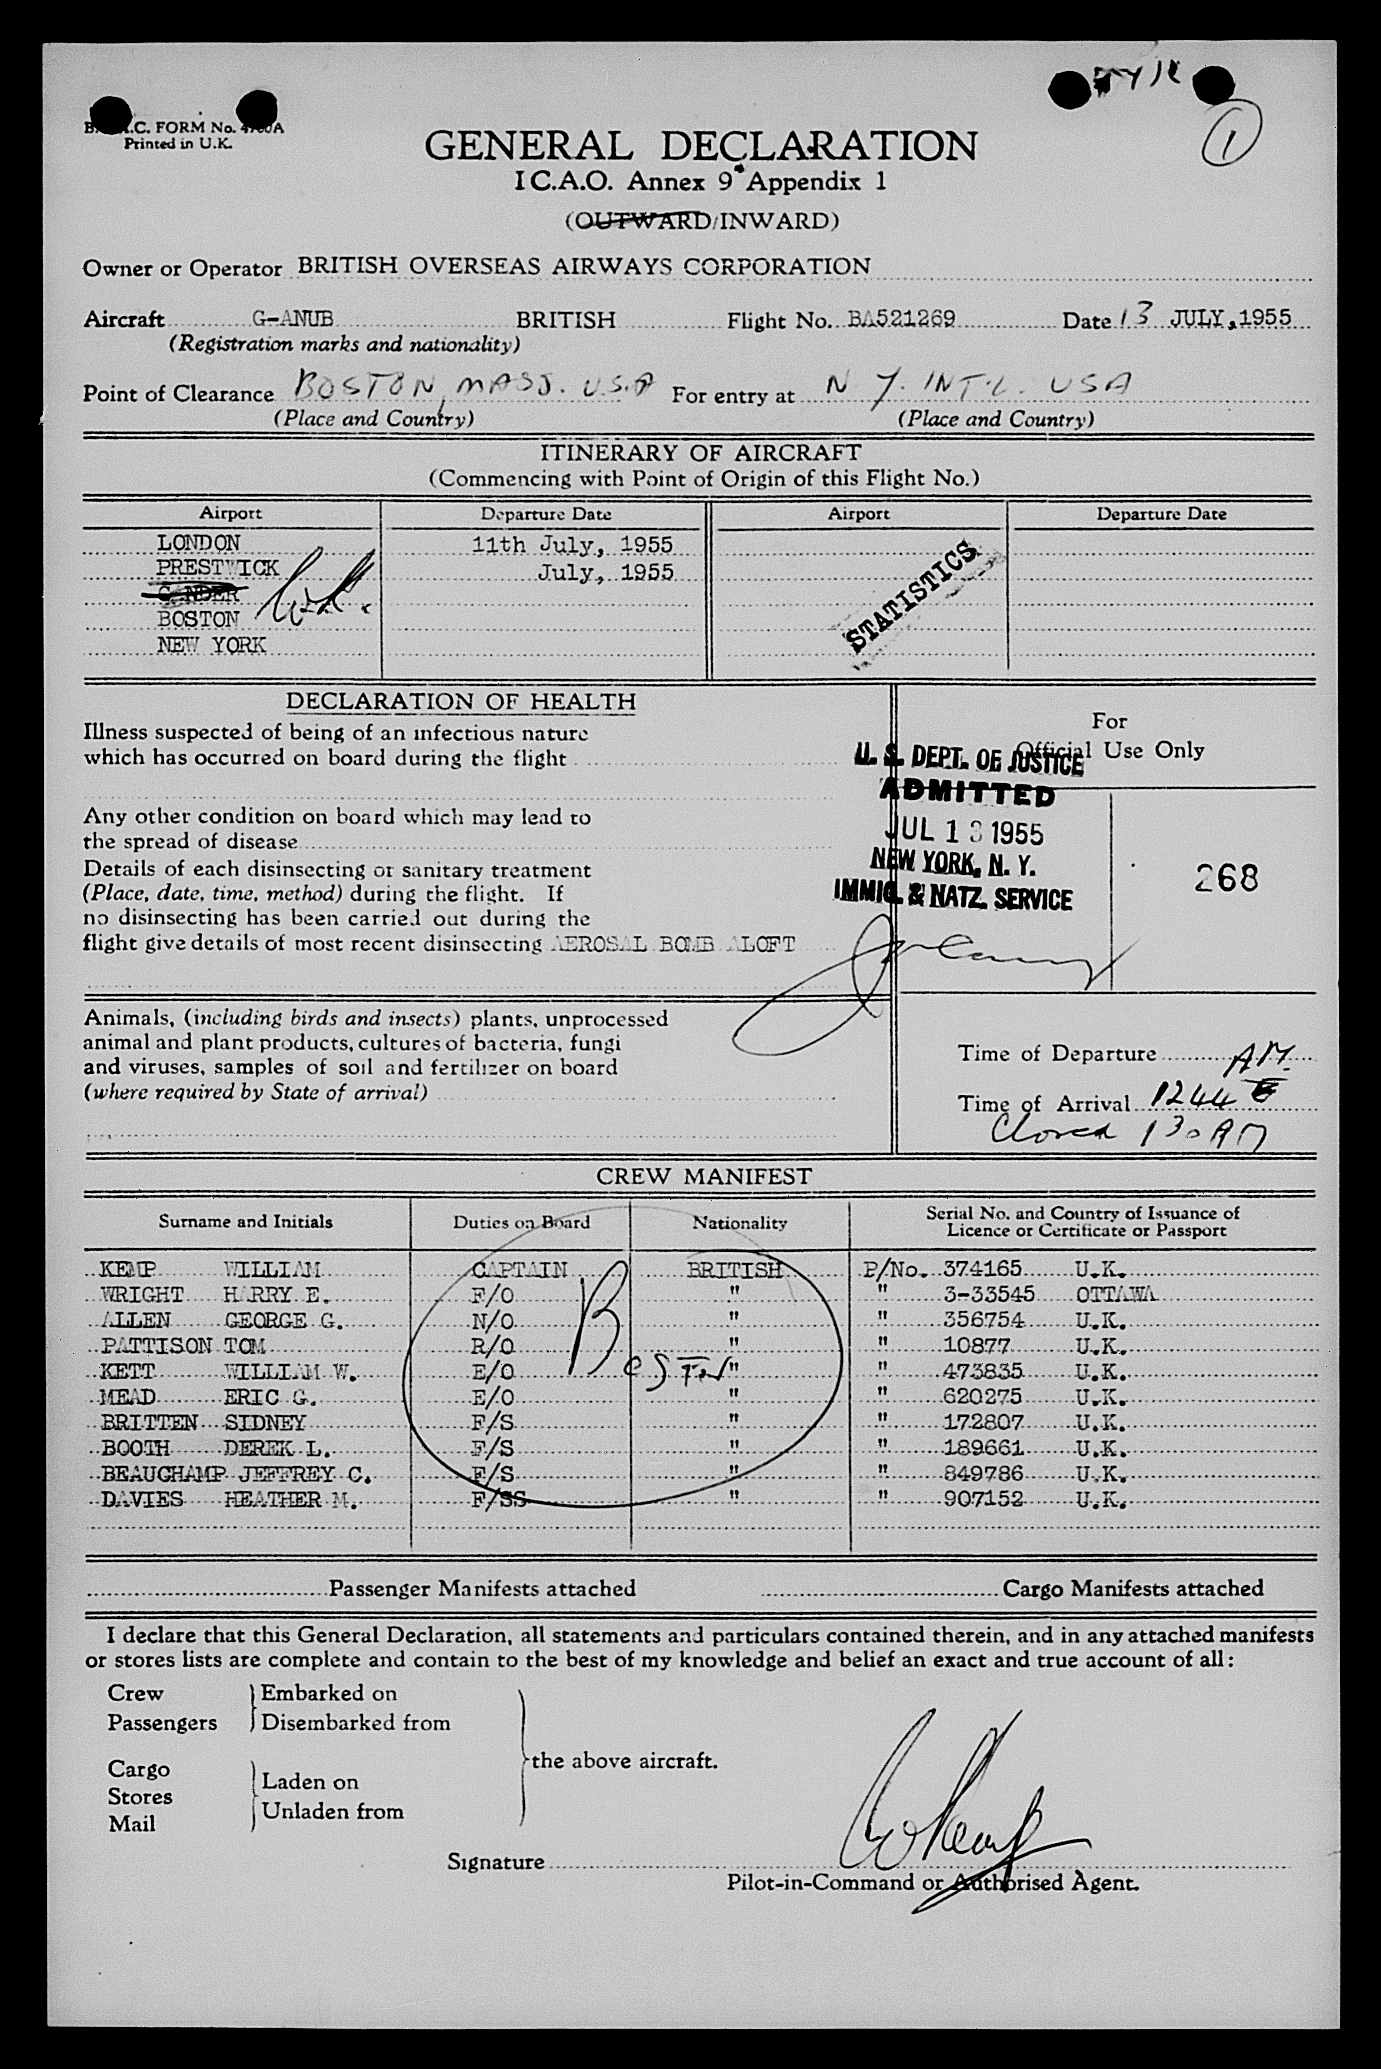 ①
Printed in U.K.
GENERAL DECLARATION
I C.A.O. Annex 9 Appendix 1
(OUTWARD/INWARD)
Owner or Operator BRITISH OVERSEAS AIRWAYS CORPORATION
Aircraft G-ANUB BRITISH Flight No. BA521269 Date 13 JULY, 1955
(Registration marks and nationality)
Point of Clearance BOSTON, MASS. U.S.A For entry at N Y. INT'L. USA
(Place and Country) (Place and Country)
ITINERARY OF AIRCRAFT
(Commencing with Point of Origin of this Flight No.)
Airport Departure Date Airport Departure Date
LONDON 11th July, 1955
PRESTWICK July, 1955
GANDER
BOSTON
NEW YORK
STATISTICS
DECLARATION OF HEALTH
Illness suspected of being of an infectious nature
which has occurred on board during the flight
Any other condition on board which may lead to
the spread of disease
Details of each disinsecting or sanitary treatment
(Place, date, time, method) during the flight. If
no disinsecting has been carried out during the
flight give details of most recent disinsecting AEROSAL BOMB ALOFT
For
Official Use Only
U. S. DEPT. OF JUSTICE
ADMITTED
JUL 13 1955
NEW YORK, N. Y.
IMMIG. & NATZ. SERVICE
268
Animals, (including birds and insects) plants, unprocessed
animal and plant products, cultures of bacteria, fungi
and viruses, samples of soil and fertilizer on board
(where required by State of arrival)
Time of Departure AM.
Time of Arrival 1244
Closed 130 AM
CREW MANIFEST
Surname and Initials Duties on Board Nationality Serial No. and Country of Issuance of
Licence or Certificate or Passport
KEMP WILLIAM CAPTAIN BRITISH P/No. 374165 U.K.
WRIGHT HARRY E. F/O " " 3-33545 OTTAWA
ALLEN GEORGE G. N/O " " 356754 U.K.
PATTISON TOM R/O " " 10877 U.K.
KETT WILLIAM W. E/O " " 473835 U.K.
MEAD ERIC G. E/O " " 620275 U.K.
BRITTEN SIDNEY F/S " " 172807 U.K.
BOOTH DEREK L. F/S " " 189661 U.K.
BEAUCHAMP JEFFREY C. F/S " " 849786 U.K.
DAVIES HEATHER M. F/SS " " 907152 U.K.
BOSTON
Passenger Manifests attached Cargo Manifests attached
I declare that this General Declaration, all statements and particulars contained therein, and in any attached manifests
or stores lists are complete and contain to the best of my knowledge and belief an exact and true account of all:
Crew Embarked on
Passengers Disembarked from
the above aircraft.
Cargo
Stores Laden on
Mail Unladen from
Signature W Kemp
Pilot-in-Command or Authorised Agent.